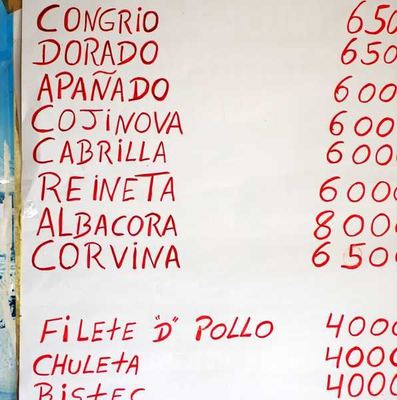 CONGRIO 650
DORADO 650
APAÑADO 600
COJINOVA 600
CABRILLA 600
REINETA 6000
ALBACORA 800
CORVINA 6500
FILEtE "D" POLLO 4000
CHULEtA 4000
BIStEC 4000